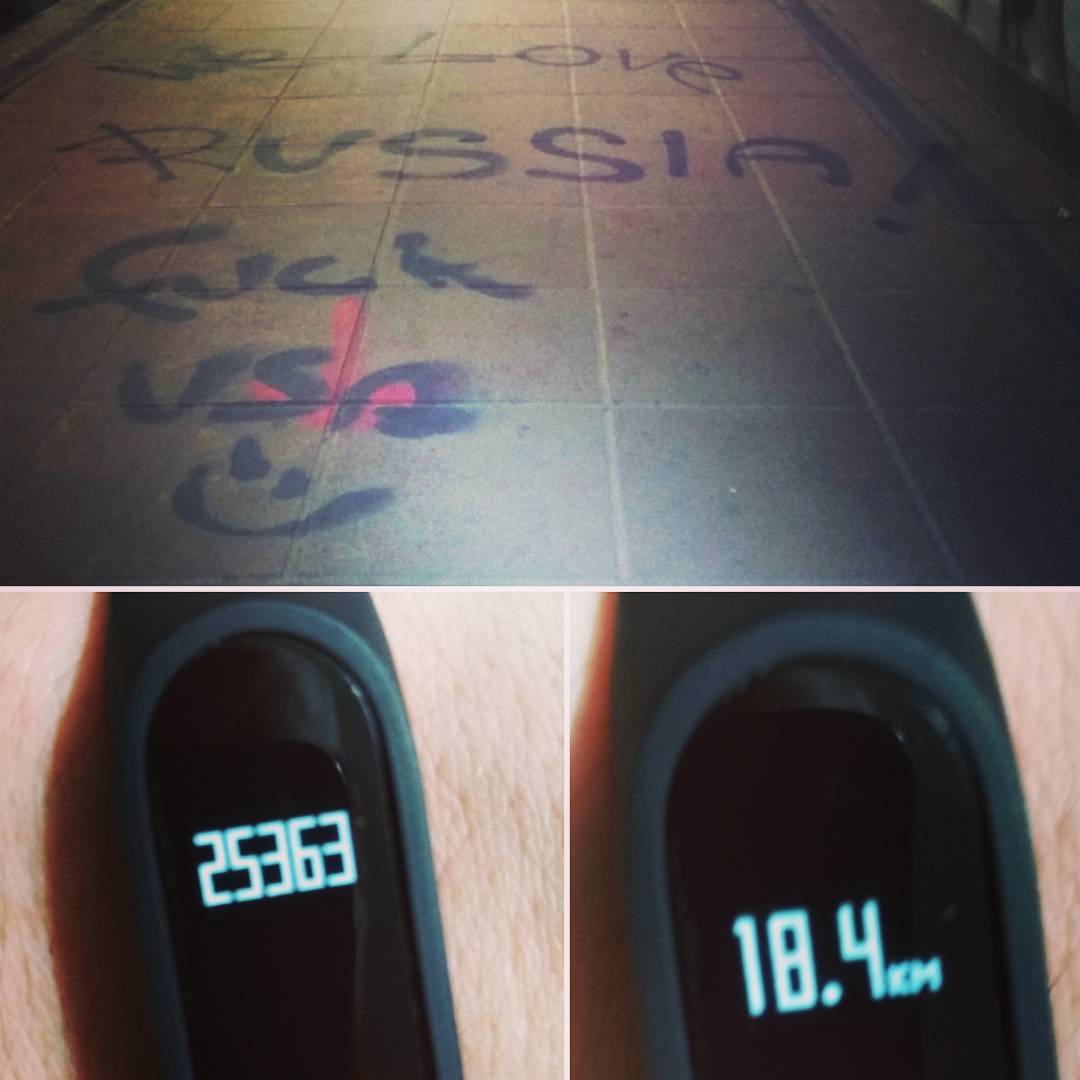 We Love
RUSSIA!
fuck
USA
25363
18.4KM